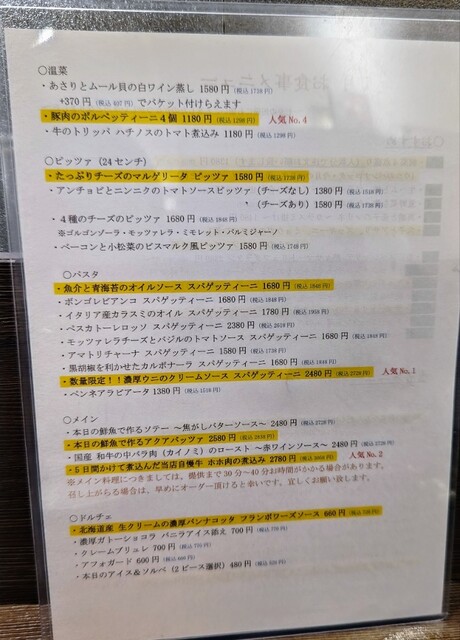 ○温菜
・あさりとムール貝の白ワイン蒸し 1580円(税込1738円)
+370円(税込407円)でバケット付けらえます
・豚肉のポルペッティーニ4個 1180円(税込1298円) 人気No.4
・牛のトリッパ ハチノスのトマト煮込み 1180円(税込1298円)
○ピッツァ(24センチ)
・たっぷりチーズのマルゲリータ ピッツァ 1580円(税込1738円)
・アンチョビとニンニクのトマトソースピッツァ(チーズなし)1380円(税込1518円)
・(チーズあり)1580円(税込1738円)
・4種のチーズのピッツァ 1680円(税込1848円)
※ゴルゴンゾーラ・モッツァレラ・ミモレット・パルミジャーノ
・ベーコンと小松菜のビスマルク風ピッツァ 1580円(税込1748円)
○パスタ
・魚介と青海苔のオイルソース スパゲッティーニ 1680円(税込1848円)
・ボンゴレビアンコ スパゲッティーニ 1680円(税込1848円)
・イタリア産カラスミのオイル スパゲッティーニ 1780円(税込1958円)
・ペスカトーレロッソ スパゲッティーニ 2380円(税込2618円)
・モッツァレラチーズとバジルのトマトソース スパゲッティーニ 1680円(税込1848円)
・アマトリチャーナ スパゲッティーニ 1580円(税込1738円)
・黒胡椒を利かせたカルボナーラ スパゲッティーニ 1680円(税込1848円)
・数量限定!!濃厚ウニのクリームソース スパゲッティーニ 2480円(税込2728円) 人気No.1
・ペンネアラビアータ 1380円(税込1518円)
○メイン
・本日の鮮魚で作るソテー ~焦がしバターソース~ 2480円(税込2728円)
・本日の鮮魚で作るアクアパッツァ 2580円(税込2838円)
・国産 和牛の中バラ肉(カイノミ)のロースト ~赤ワインソース~ 2480円(税込2728円)
・5日間かけて煮込んだ当店自慢牛 ホホ肉の煮込み 2780円 人気No.2
※メイン料理につきましては、提供まで30分~40分お時間がかかる場合があります。
召し上がる場合は、早めにオーダー頂けると幸いです。宜しくお願い致します。
○ドルチェ
・北海道産 生クリームの濃厚パンナコッタ フランボワーズソース 660円
・濃厚ガトーショコラ バニラアイス添え 700円(税込770円)
・クレームブリュレ 700円(税込770円)
・アフォガード 600円(税込660円)
・本日のアイス&ソルベ(2ピース選択)480円(税込528円)